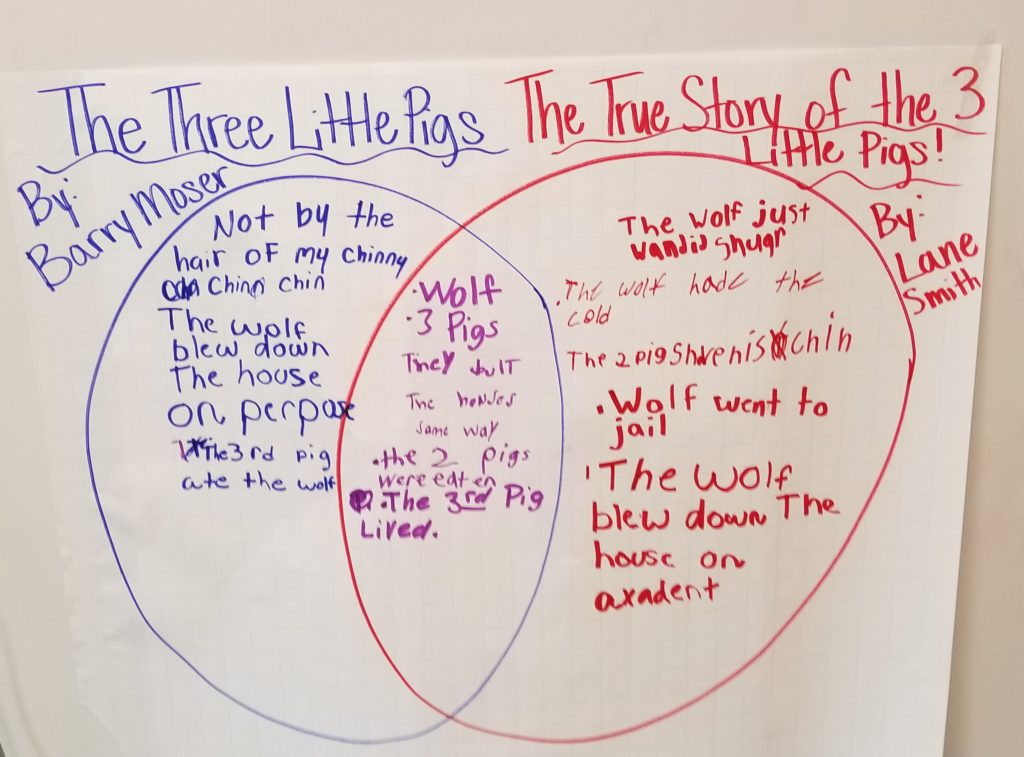 The Three Little Pigs
By:
Barry Moser
Not by the
hair of my chinny
chinn chin
The wolf
blew down
The house
on perpase
The 3rd pig
ate the wolf
.Wolf
.3 Pigs
They bulT
The houses
same way
.the 2 pigs
were eaten
.The 3rd Pig
Lived.
The True Story of the 3
Little Pigs!
By:
Lane
Smith
The wolf just
wandid shugr
.The wolf hade the
cold
The 2 pigs chin
.Wolf went to
jail
The wolf
blew down The
house on
axadent